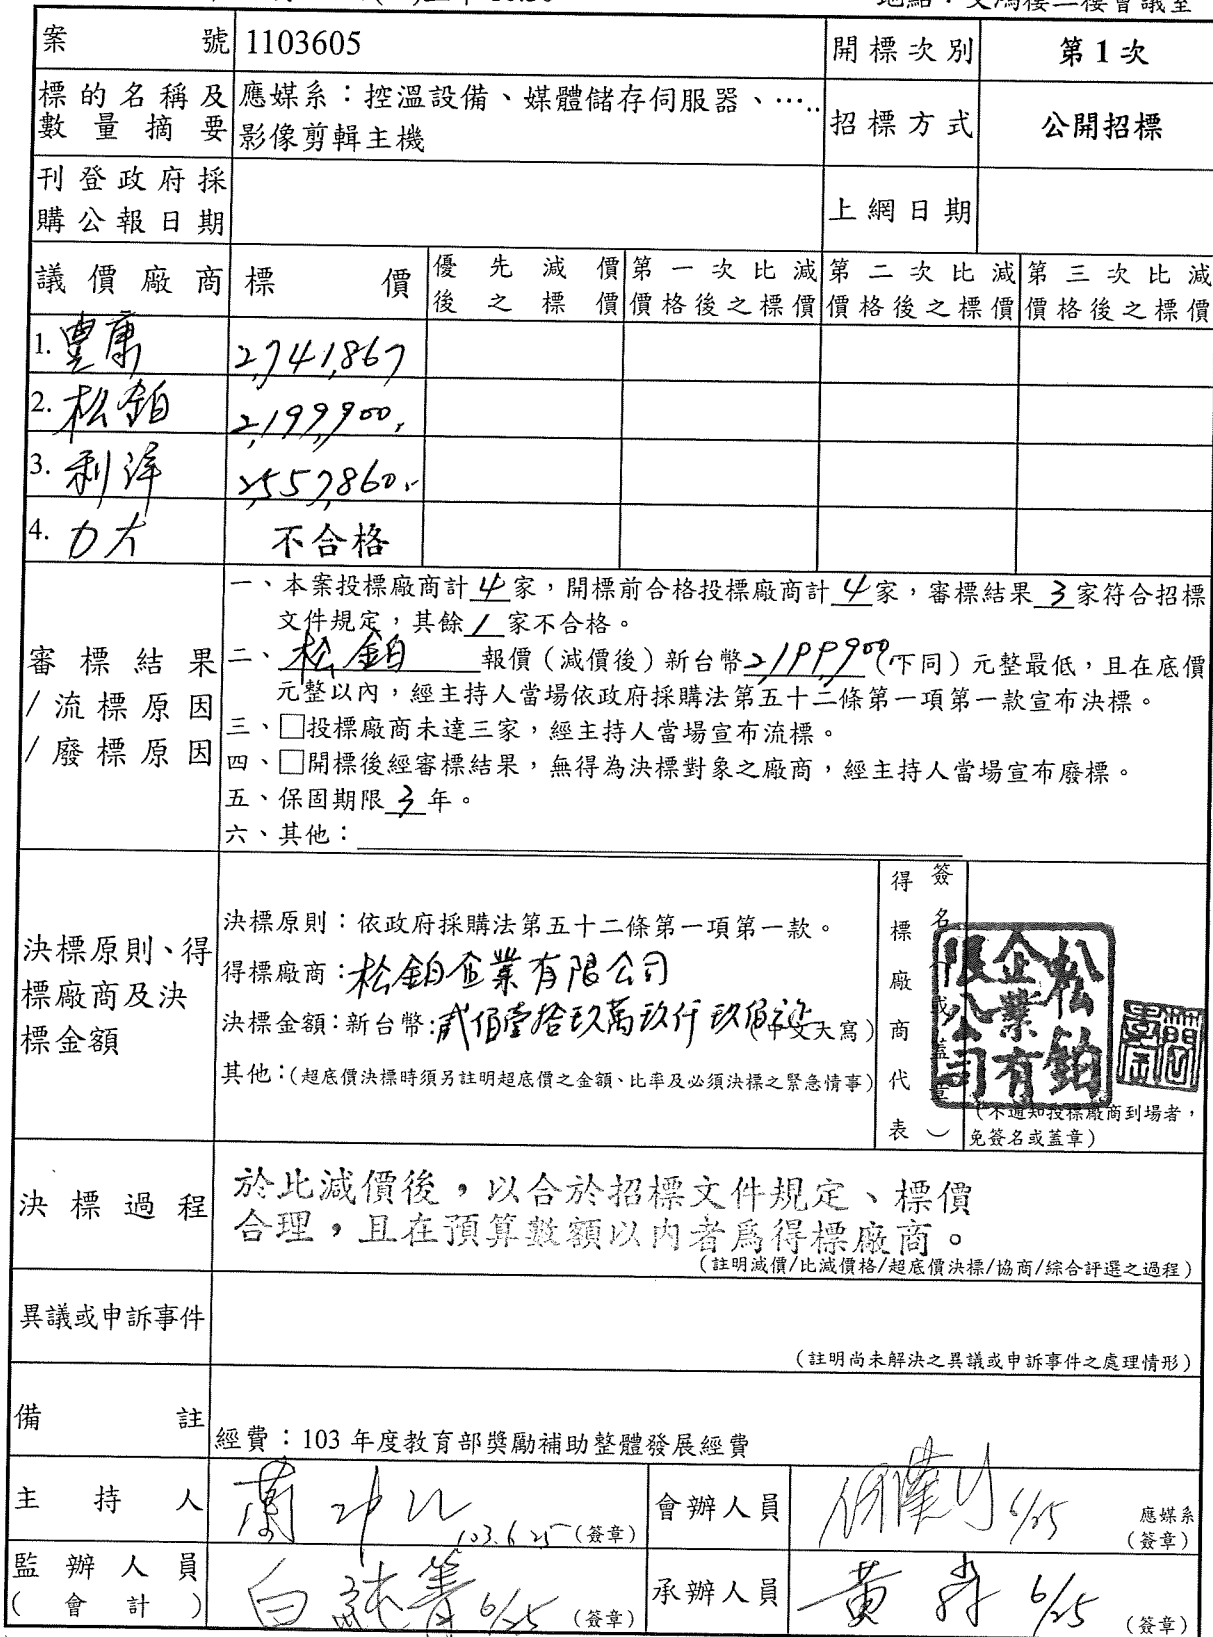 案號 1103605 開標次別 第1次
標的名稱及數量摘要 應媒系：控溫設備、媒體儲存伺服器、…..
影像剪輯主機 招標方式 公開招標
刊登政府採購公報日期 上網日期
議價廠商 標價 優先減價後之標價 第一次比減價格後之標價 第二次比減價格後之標價 第三次比減價格後之標價
1. 豐康 2,741,867
2. 松鉑 2,199,900.
3. 利洋 2,557,860.
4. 力大 不合格
審標結果/流標原因/廢標原因
一、本案投標廠商計4家，開標前合格投標廠商計4家，審標結果3家符合招標
文件規定，其餘1家不合格。
二、松鉑報價（減價後）新台幣2,199,900(下同）元整最低，且在底價
元整以內，經主持人當場依政府採購法第五十二條第一項第一款宣布決標。
三、□投標廠商未達三家，經主持人當場宣布流標。
四、□開標後經審標結果，無得為決標對象之廠商，經主持人當場宣布廢標。
五、保固期限3年。
六、其他：
決標原則、得標廠商及決標金額
決標原則：依政府採購法第五十二條第一項第一款。
得標廠商：松鉑企業有限公司
決標金額：新台幣：貳佰壹拾玖萬玖仟玖佰元整（中文大寫）
其他：(超底價決標時須另註明超底價之金額、比率及必須決標之緊急情事)
得標廠商代表
簽名（或蓋章）
松鉑企業有限公司
（不通知投標廠商到場者，
免簽名或蓋章）
決標過程 於比減價後，以合於招標文件規定、標價
合理，且在預算數額以內者爲得標廠商。
(註明減價/比減價格/超底價決標/協商/綜合評選之過程)
異議或申訴事件
(註明尚未解決之異議或申訴事件之處理情形)
備註 經費：103 年度教育部獎勵補助整體發展經費
主持人 103.6.25 (簽章) 會辦人員 6/25 應媒系
(簽章)
監辦人員
(會計) 6/25 (簽章) 承辦人員 黃 6/25 (簽章)